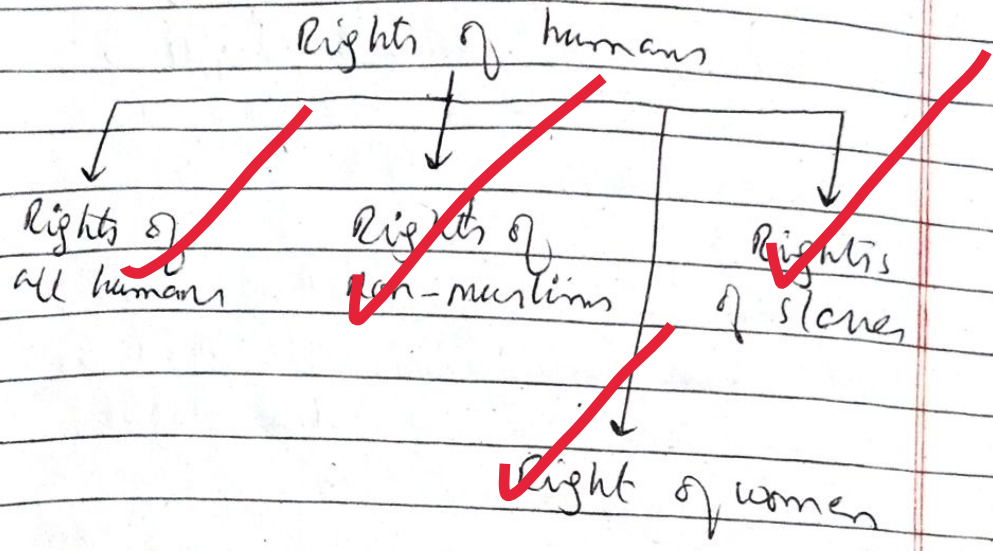 Rights of humans
Rights of
all humans
Rights of
non-muslims
Rights
of slaves
Right of women